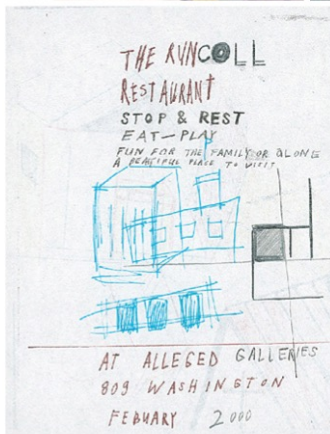 THE RUNCOLL
RESTAURANT
STOP & REST
EAT-PLAY
FUN FOR THE FAMILY OR ALONE
A BEAUTIFUL PLACE TO VISIT
AT ALLEGED GALLERIES
809 WASHINGTON
FEBUARY 2000